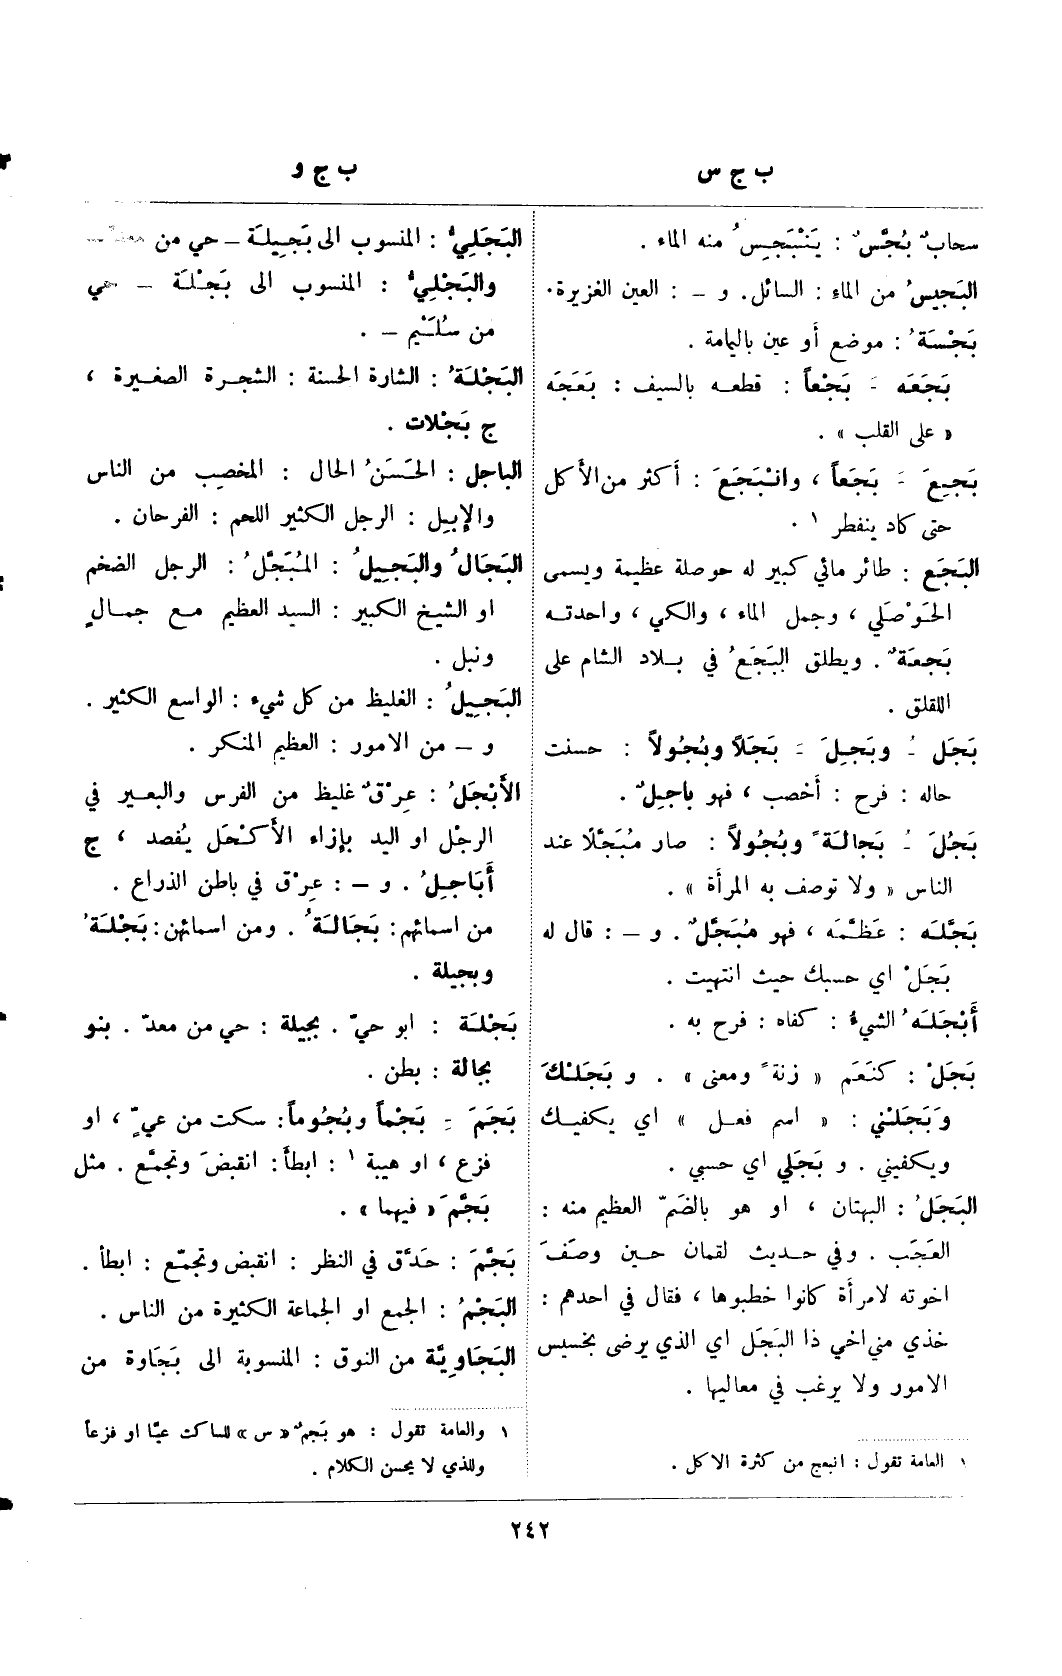 ب ج س
سحابٌ بُجَّسٌ : يَنْبَجِسُ منه الماء .
البَجيسُ من الماء : السائل. و – : العين الغزيرة.
بَجْسَةُ : موضع أو عين باليمامة .
بَجَعَه َ بَجْعاً : قطعه بالسيف : بَعَجَه
« على القلب » .
بَجِعَ َ بَجَعاً ، وانْبَجَعَ : أكثر من الأكل
حتى كاد ينفطر ١ .
البَجَع : طائر مائي كبير له حوصلة عظيمة ويسمى
الحَوْصَلي ، وجمل الماء ، والكي ، واحدته
بَجعَةٌ . ويطلق البَجَعُ في بلاد الشام على
اللقلق .
بَجَل ُ وبَجِلَ َ بَجَلاً وبُجُولاً : حسنت
حاله : فرح : أخصب ، فهو باجِلٌ .
بَجُلَ ُ بَجالةً وبُجُولاً : صار مُبَجَّلًا عند
الناس « ولا توصف به المرأة » .
بَجَّلَه : عَظَّمَه ، فهو مُبَجَّلٌ . و – : قال له
بَجَلْ اي حسبك حيث انتهيت .
أَبْجَلَهُ الشيءُ : كفاه : فرح به .
بَجَلْ : كَنَعَم « زنةً ومعنى » . و بَجَلْكَ
وَبَجَلْني : « اسم فعل » اي يكفيك
ويكفيني . و بَجَلي اي حسبي .
البَجَلُ : البهتان ، او هو بالضَمّ العظيم منه :
العَجَب . وفي حديث لقمان حين وصَفَ
اخوته لامرأة كانوا خطبوها ، فقال في احدهم :
خذي مني اخي ذا البَجَل اي الذي يرضى بخسيس
الامور ولا يرغب في معاليها .
١ العامة تقول : انبعج من كثرة الاكل .
ب ج و
البَجَليُّ : المنسوب الى بَجِيلة – حي من معدّ –
والبَجْليُّ : المنسوب الى بَجْلة – حي
من سُلَيْم – .
البَجْلَةُ : الشارة الحسنة : الشجرة الصغيرة ،
ج بَجْلات .
الباجل : الحَسَنُ الحال : المخصِب من الناس
والإبِل : الرجل الكثير اللحم : الفرحان .
البَجَالُ والبَجِيلُ : المُبَجَّلُ : الرجل الضخم
او الشيخ الكبير : السيد العظيم مع جمالٍ
ونبل .
البَجِيلُ : الغليظ من كل شيء : الواسع الكثير .
و – من الامور : العظيم المنكر .
الأَبْجَلُ : عِرْقٌ غليظ من الفرس والبعير في
الرجْل او اليد بإزاء الأَكْحَل يُفصد ، ج
أَبَاجِلُ . و – : عِرْق في باطن الذراع .
من اسمائهم: بَجَالَةُ . ومن اسمائهن: بَجْلَةُ
وبجيلة .
بَجْلَة : ابو حيّ . بجيلة : حي من معدّ . بنو
بجالة : بطن .
بَجَمَ ِ بَجْماً وبُجُوماً : سكت من عيٍّ ، او
فزع ، او هيبة ١ : ابطأ : انقبضَ وتجمَّع . مثل
بَجَّمَ « فيهما » .
بَجَّمَ : حَدَّق في النظر : انقبض وتجمّع : ابطأ .
البَجْمُ : الجمع او الجماعة الكثيرة من الناس .
البَجَاوِيَّة من النوق : المنسوبة الى بَجَاوة من
١ والعامة تقول : هو بَجمٌ « س » للساكت عيًّا او فزعاً
وللذي لا يحسن الكلام .
٢٤٢